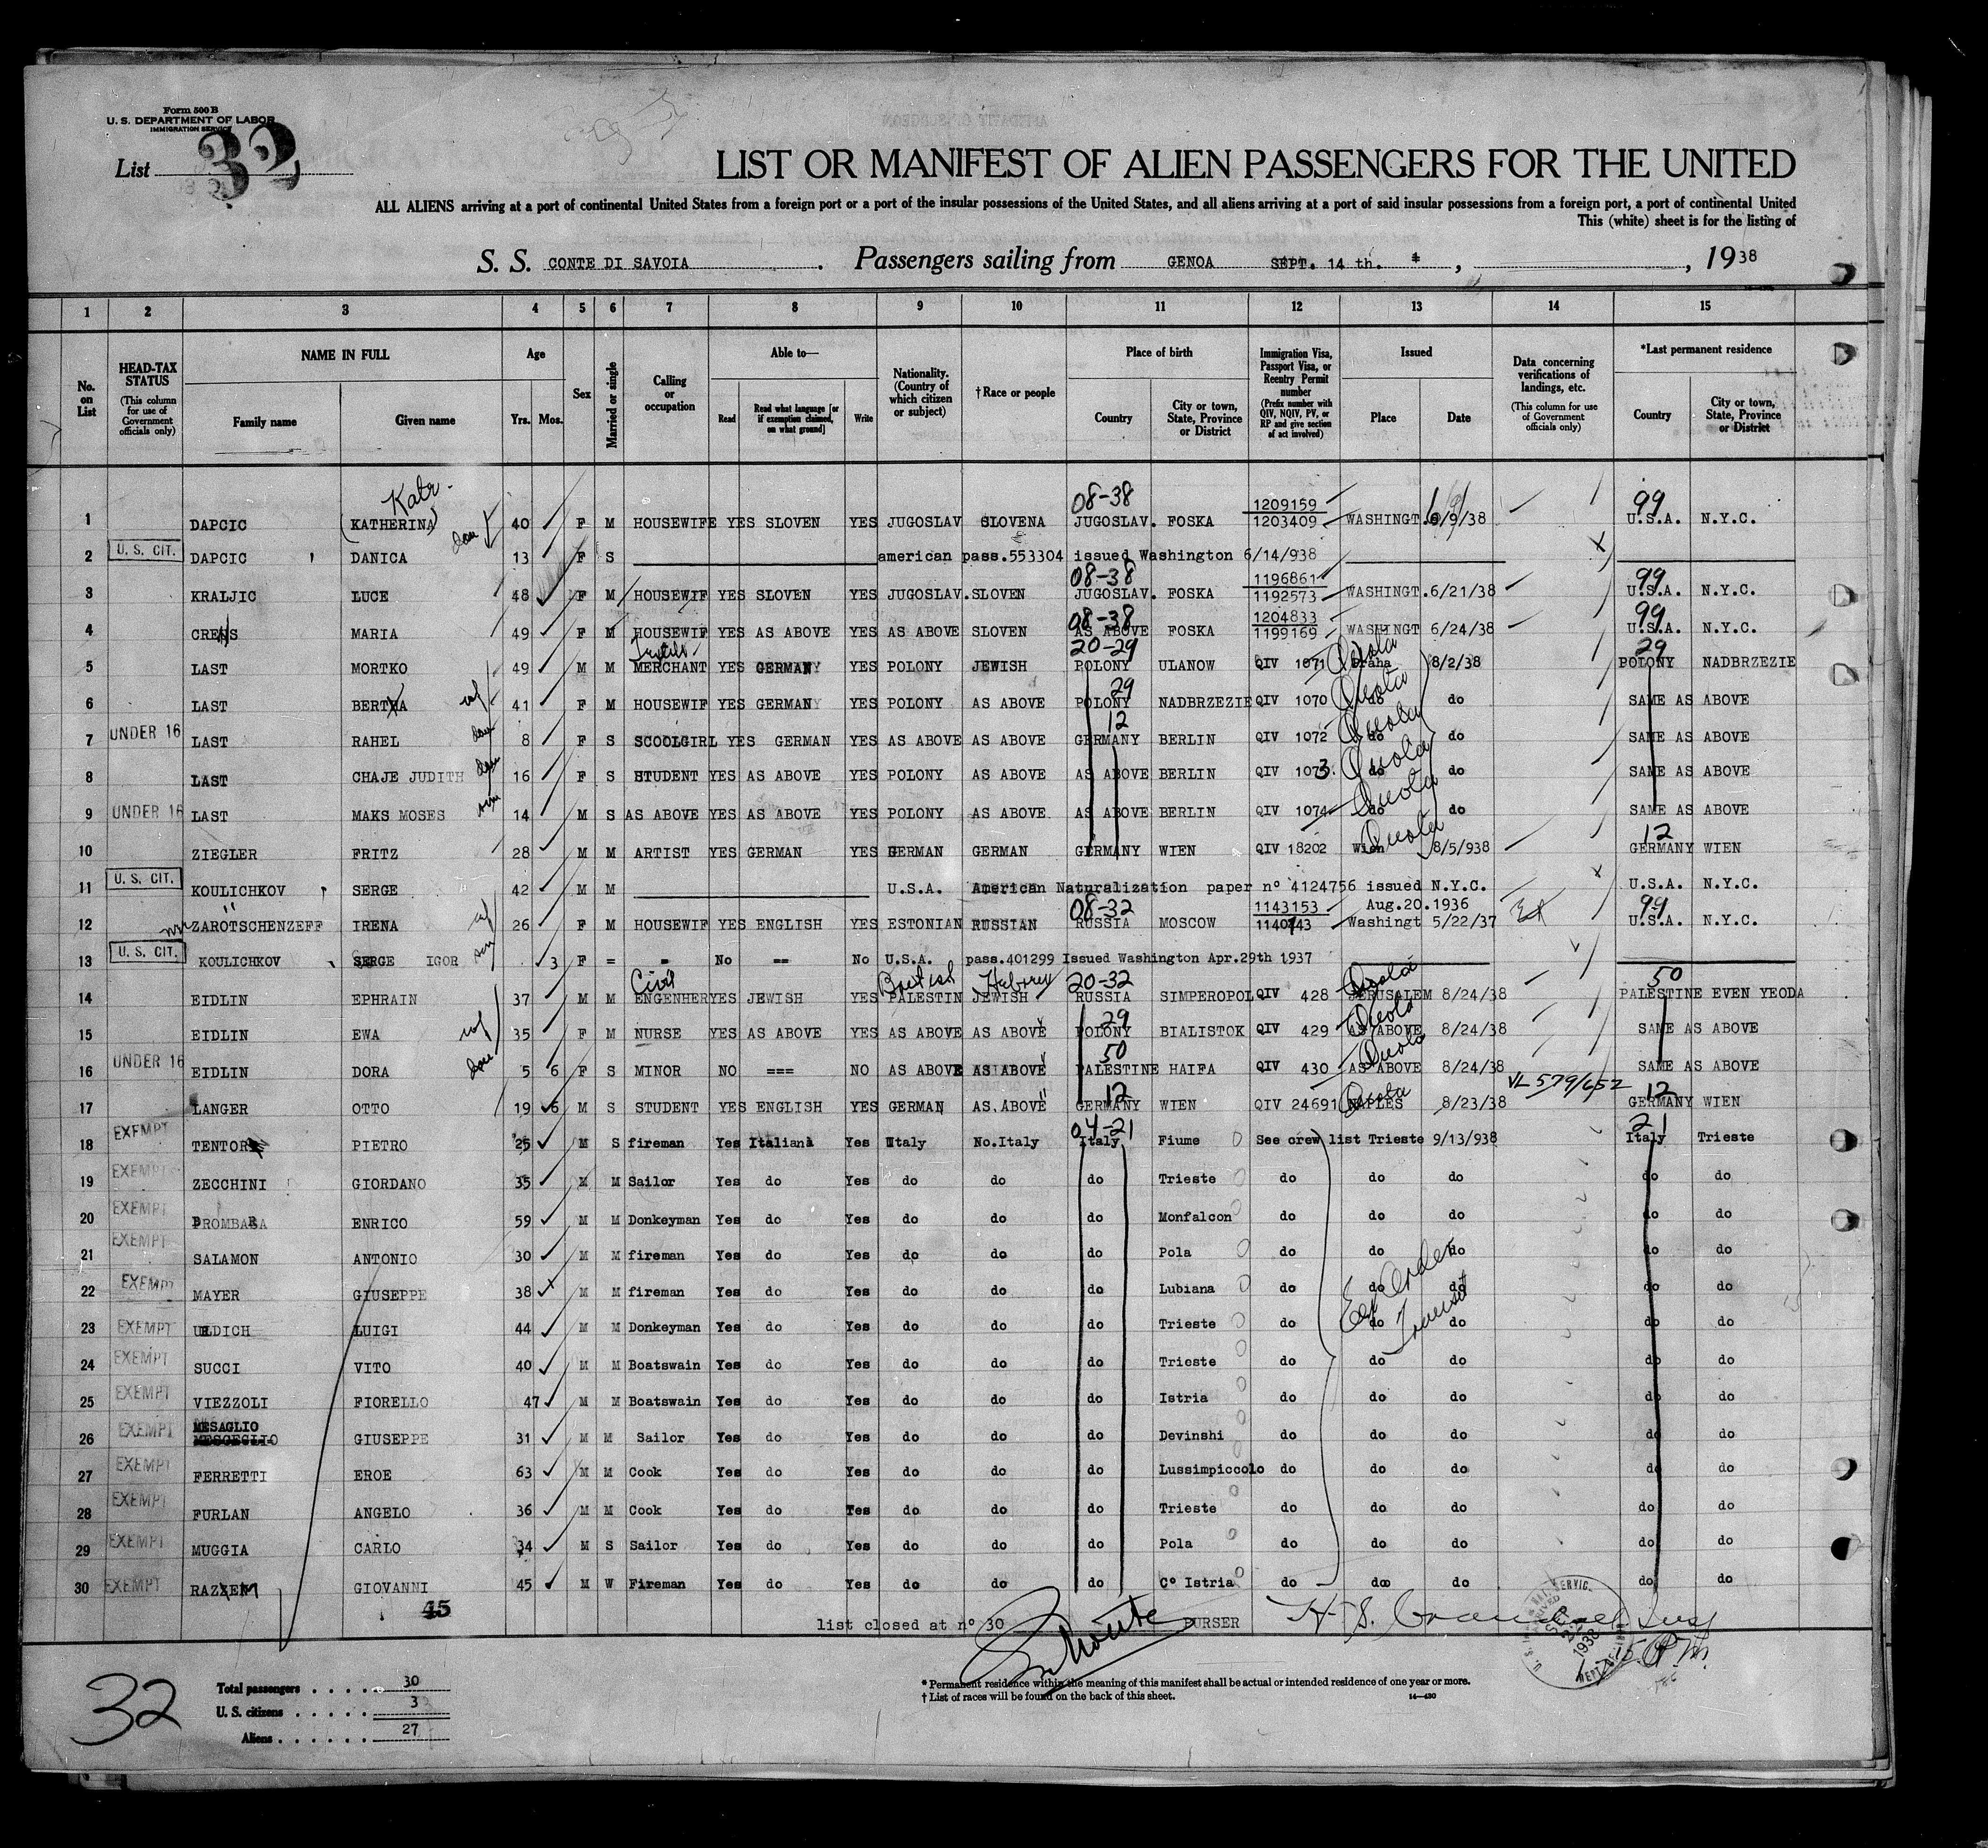 Form 500 B
U. S. DEPARTMENT OF LABOR
IMMIGRATION SERVICE
List 32
LIST OR MANIFEST OF ALIEN PASSENGERS FOR THE UNITED
ALL ALIENS arriving at a port of continental United States from a foreign port or a port of the insular possessions of the United States, and all aliens arriving at a port of said insular possessions from a foreign port, a port of continental United
This (white) sheet is for the listing of
S. S. CONTE DI SAVOIA. Passengers sailing from GENOA SEPT. 14 th. , , 1938
1 2 3 4 5 6 7 8 9 10 11 12 13 14 15
No. on List
HEAD-TAX STATUS (This column for use of Government officials only)
NAME IN FULL Family name Given name
Age Yrs. Mos.
Sex
Married or single
Calling or occupation
Able to— Read Read what language [or if exemption claimed, on what ground] Write
Nationality. (Country of which citizen or subject)
†Race or people
Place of birth Country City or town, State, Province or District
Immigration Visa, Passport Visa, or Reentry Permit number (Prefix number with QIV, NQIV, PV, or RP and give section of act involved)
Issued Place Date
Data concerning verifications of landings, etc. (This column for use of Government officials only)
*Last permanent residence Country City or town, State, Province or District
Katr. 08-38 1209159 99
1 DAPCIC (KATHERINA) 40 F M HOUSEWIFE YES SLOVEN YES JUGOSLAV SLOVENA JUGOSLAV. FOSKA 1203409 WASHINGT. 6/9/38 U.S.A. N.Y.C.
2 U. S. CIT. DAPCIC DANICA dau 13 F S american pass.553304 issued Washington 6/14/938
08-38 1196861 99
3 KRALJIC LUCE 48 F M HOUSEWIF YES SLOVEN YES JUGOSLAV. SLOVEN JUGOSLAV. FOSKA 1192573 WASHINGT. 6/21/38 U.S.A. N.Y.C.
08-38 1204833 99
4 MARIA 49 F M HOUSEWIF YES AS ABOVE YES AS ABOVE SLOVEN AS ABOVE FOSKA 1199169 WASHINGT 6/24/38 U.S.A. N.Y.C.
20-29 Quota 29
5 LAST MORTKO 49 M M MERCHANT YES GERMAN YES POLONY JEWISH POLONY ULANOW QIV 1071 Praha 8/2/38 POLONY NADBRZEZIE
29 Quota
6 LAST BERTHA wf 41 F M HOUSEWIF YES GERMAN YES POLONY AS ABOVE POLONY NADBRZEZIE QIV 1070 do do SAME AS ABOVE
12 Quota
7 UNDER 16 LAST RAHEL dau 8 F S SCOOLGIRL YES GERMAN YES AS ABOVE AS ABOVE GERMANY BERLIN QIV 1072 do do SAME AS ABOVE
Quota
8 LAST CHAJE JUDITH dau 16 F S STUDENT YES AS ABOVE YES POLONY AS ABOVE AS ABOVE BERLIN QIV 1073. do do SAME AS ABOVE
Quota
9 UNDER 16 LAST MAKS MOSES son 14 M S AS ABOVE YES AS ABOVE YES POLONY AS ABOVE AS ABOVE BERLIN QIV 1074 do do SAME AS ABOVE
Quota 12
10 ZIEGLER FRITZ 28 M M ARTIST YES GERMAN YES GERMAN GERMAN GERMANY WIEN QIV 18202 Wien 8/5/938 GERMANY WIEN
11 U. S. CIT. KOULICHKOV SERGE 42 M M U.S.A. American Naturalization paper n° 4124756 issued N.Y.C. U.S.A. N.Y.C.
08-32 1143153 Aug.20.1936 99
12 ZAROTSCHENZEFF IRENA wf 26 F M HOUSEWIF YES ENGLISH YES ESTONIAN RUSSIAN RUSSIA MOSCOW 1140443 Washingt 5/22/37 U.S.A. N.Y.C.
13 U. S. CIT. KOULICHKOV SERGE IGOR son 3 F = = No == No U.S.A. pass.401299 Issued Washington Apr.29th 1937
Civil British Hebrew 20-32 Quota 50
14 EIDLIN EPHRAIN 37 M M ENGENHER YES JEWISH YES PALESTIN JEWISH RUSSIA SIMPEROPOL QIV 428 JERUSALEM 8/24/38 PALESTINE EVEN YEODA
29 Quota
15 EIDLIN EWA wf 35 F M NURSE YES AS ABOVE YES AS ABOVE AS ABOVE POLONY BIALISTOK QIV 429 AS ABOVE 8/24/38 SAME AS ABOVE
50 Quota
16 UNDER 16 EIDLIN DORA dau 5 6 F S MINOR NO === NO AS ABOVE AS ABOVE PALESTINE HAIFA QIV 430 AS ABOVE 8/24/38 SAME AS ABOVE
12 Quota VL 579/652 12
17 LANGER OTTO 19 6 M S STUDENT YES ENGLISH YES GERMAN AS.ABOVE GERMANY WIEN QIV 24691 NAPLES 8/23/38 GERMANY WIEN
04-21 21
18 EXEMPT PIETRO 25 M S fireman Yes Italiana Yes Italy No.Italy Italy Fiume See crew list Trieste 9/13/938 Italy Trieste
19 EXEMPT ZECCHINI GIORDANO 35 M M Sailor Yes do Yes do do do Trieste do do do do do
20 EXEMPT ENRICO 59 M M Donkeyman Yes do Yes do do do Monfalcon do do do do do
21 EXEMPT SALAMON ANTONIO 30 M M fireman Yes do Yes do do do Pola do do do do do
22 EXEMPT MAYER GIUSEPPE 38 M M fireman Yes do Yes do do do Lubiana do do do do do
23 EXEMPT LUIGI 44 M M Donkeyman Yes do Yes do do do Trieste do do do do do
24 EXEMPT SUCCI VITO 40 M M Boatswain Yes do Yes do do do Trieste do do do do do
25 EXEMPT VIEZZOLI FIORELLO 47 M M Boatswain Yes do Yes do do do Istria do do do do do
26 EXEMPT MESAGLIO GIUSEPPE 31 M M Sailor Yes do Yes do do do Devinshi do do do do do
27 EXEMPT FERRETTI EROE 63 M M Cook Yes do Yes do do do Lussimpiccolo do do do do do
28 EXEMPT FURLAN ANGELO 36 M M Cook Yes do Yes do do do Trieste do do do do do
29 EXEMPT MUGGIA CARLO 34 M S Sailor Yes do Yes do do do Pola do do do do do
30 EXEMPT GIOVANNI 45 M W Fireman Yes do Yes do do do C° Istria do do do do do
45
list closed at n° 30 PURSER
32
Total passengers . . . . 30
U. S. citizens . . . . . 3
Aliens . . . . . . 27
* Permanent residence within the meaning of this manifest shall be actual or intended residence of one year or more.
† List of races will be found on the back of this sheet. 14—430